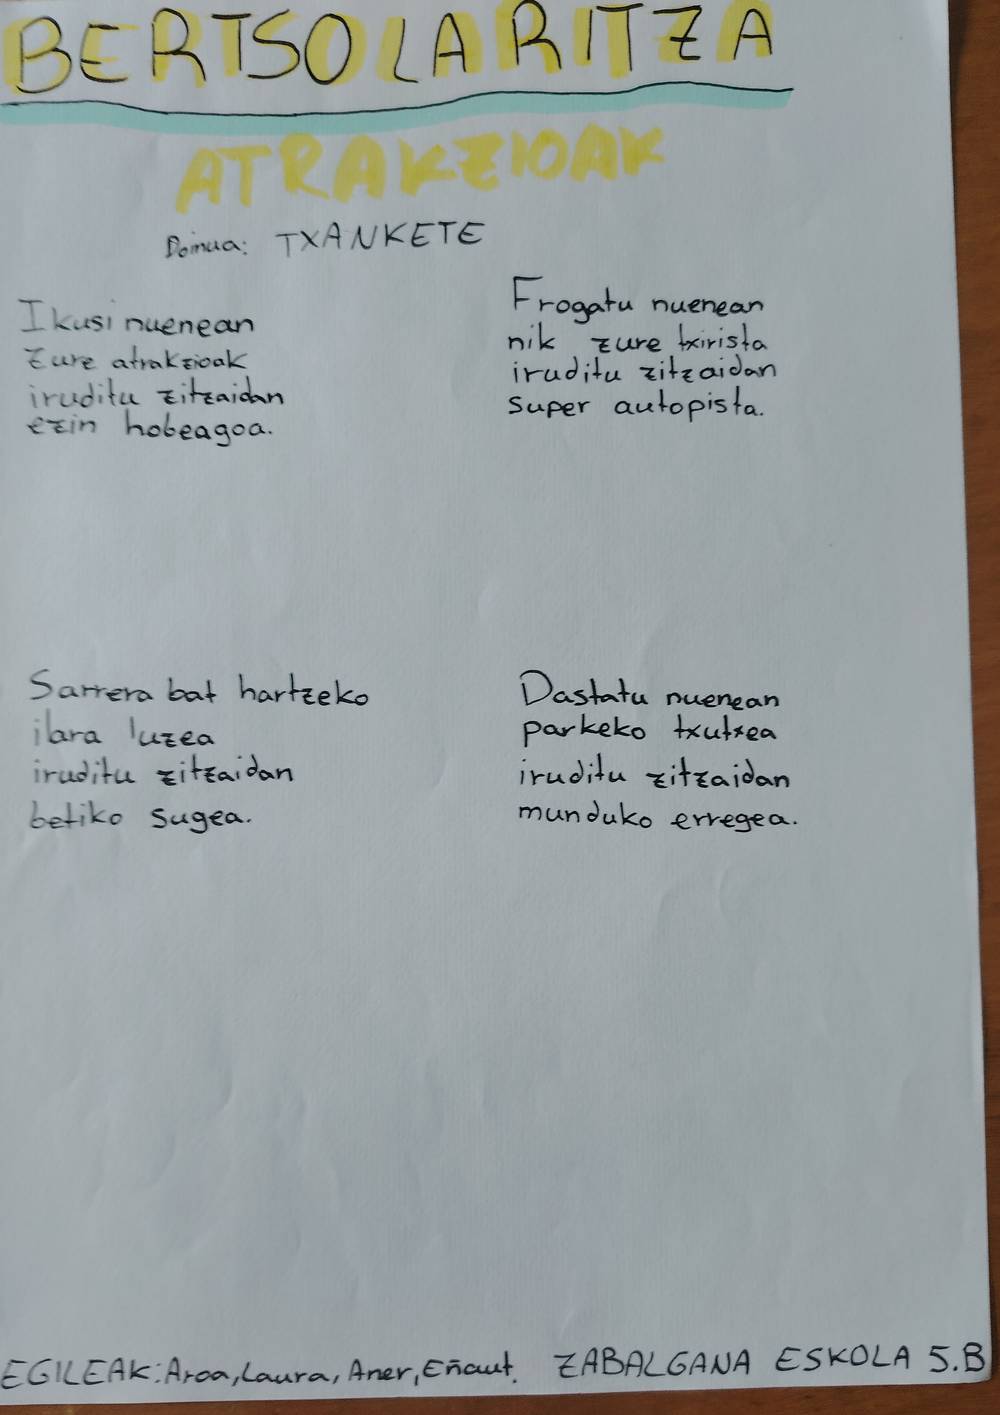 BERTSOLARITZA
ATRAKZIOAK
Doinua: TXANKETE
Ikusi nuenean
zure atrakzioak
iruditu zitzaidan
ezin hobeagoa.
Frogatu nuenean
nik zure txirista
iruditu zitzaidan
super autopista.
Sarrera bat hartzeko
ilara luzea
iruditu zitzaidan
betiko sugea.
Dastatu nuenean
parkeko txutxea
iruditu zitzaidan
munduko erregea.
EGILEAK: Aroa, Laura, Aner, Eñaut. ZABALGANA ESKOLA 5.B